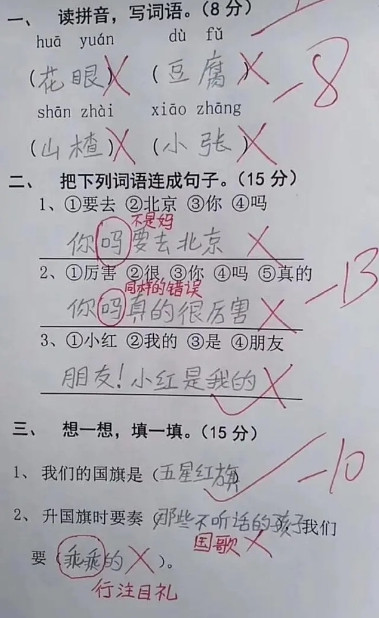 一、 读拼音，写词语。（8分）
huā yuán dù fǔ
（花眼）（豆腐）
-8
shān zhài xiāo zhāng
（山楂）（小张）
二、 把下列词语连成句子。（15分）
1、①要去 ②北京 ③你 ④吗
不是妈
你吗要去北京
2、①厉害 ②很 ③你 ④吗 ⑤真的
同样的错误
-13
你吗真的很厉害
3、①小红 ②我的 ③是 ④朋友
朋友！小红是我的
三、 想一想，填一填。（15分）
1、我们的国旗是（五星红旗
-10
2、升国旗时要奏（那些不听话的孩子我们
国歌
要（乖乖的）。
行注目礼